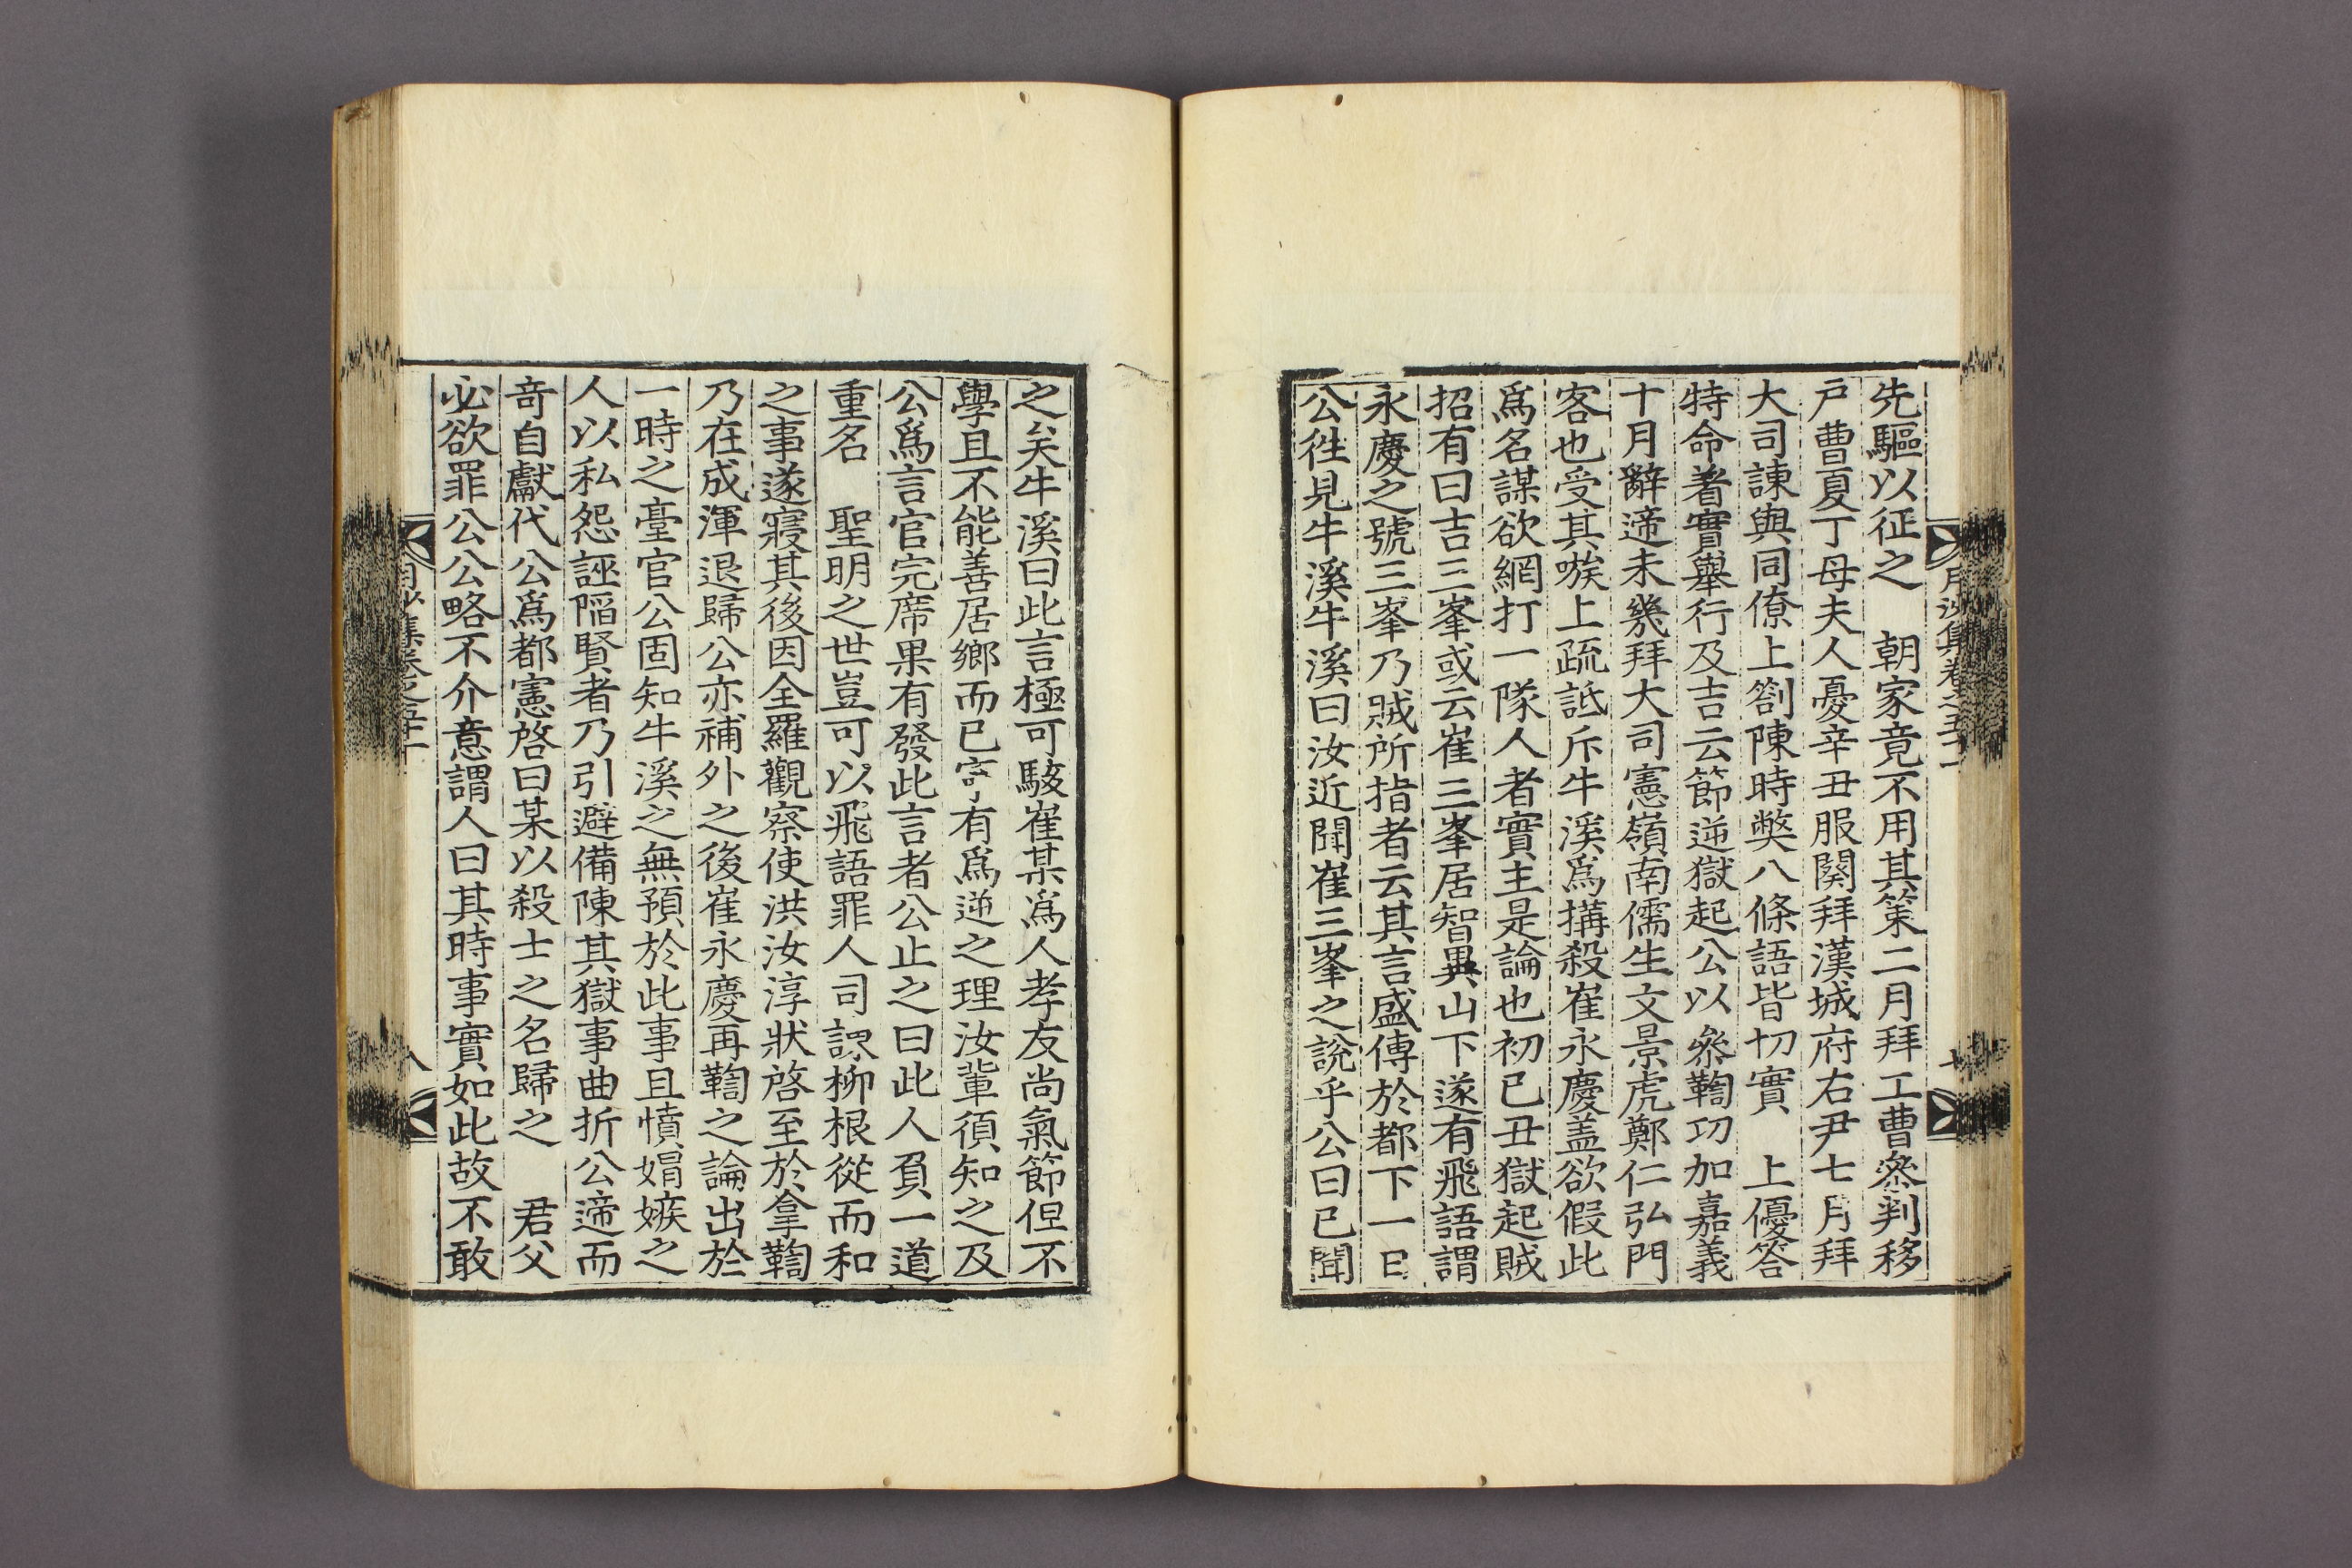 先驅以征之　朝家竟不用其策二月拜工曹參判移
戶曹夏丁母夫人憂辛丑服闋拜漢城府右尹七月拜
大司諫與同僚上劄陳時弊八條語皆切實　上優答
特命着實舉行及吉云節逆獄起公以參鞫功加嘉義
十月辭遞未幾拜大司憲嶺南儒生文景虎鄭仁弘門
客也受其嗾上疏詆斥牛溪爲搆殺崔永慶盖欲假此
爲名謀欲網打一隊人者實主是論也初己丑獄起賊
招有曰吉三峯或云崔三峯居智異山下遂有飛語謂
永慶之號三峯乃賊所指者云其言盛傳於都下一日
公徃見牛溪牛溪曰汝近聞崔三峯之說乎公曰已聞
之矣牛溪曰此言極可駭崔某爲人孝友尚氣節但不
學且不能善居鄉而已寧有爲逆之理汝輩須知之及
公爲言官完席果有發此言者公止之曰此人負一道
重名　聖明之世豈可以飛語罪人司諫柳根從而和
之事遂寢其後因全羅觀察使洪汝淳狀啓至於拿鞫
乃在成渾退歸公亦補外之後崔永慶再鞫之論出於
一時之臺官公固知牛溪之無預於此事且憤娼嫉之
人以私怨誣陷賢者乃引避備陳其獄事曲折公遞而
奇自獻代公爲都憲啓曰某以殺士之名歸之　君父
必欲罪公公略不介意謂人曰其時事實如此故不敢
月沙集卷之五十一
七
月沙集卷之五十一
八